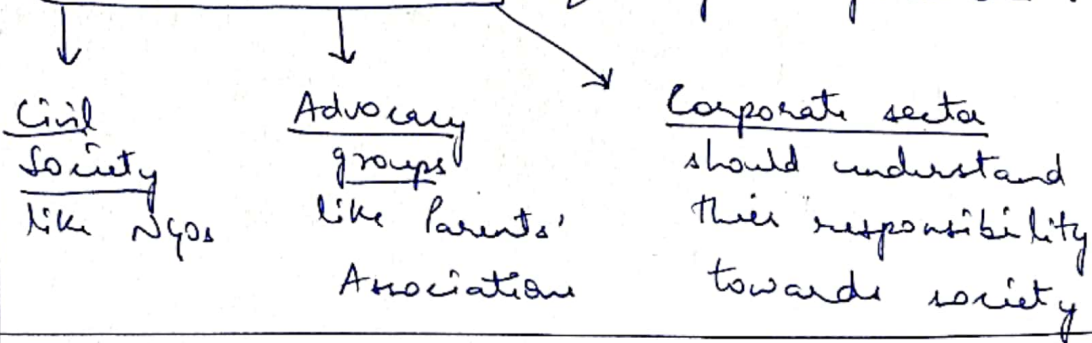 Civil
Society
like NGOs
Advocacy
groups
like Parents'
Association
Corporate sector
should understand
their responsibility
towards society